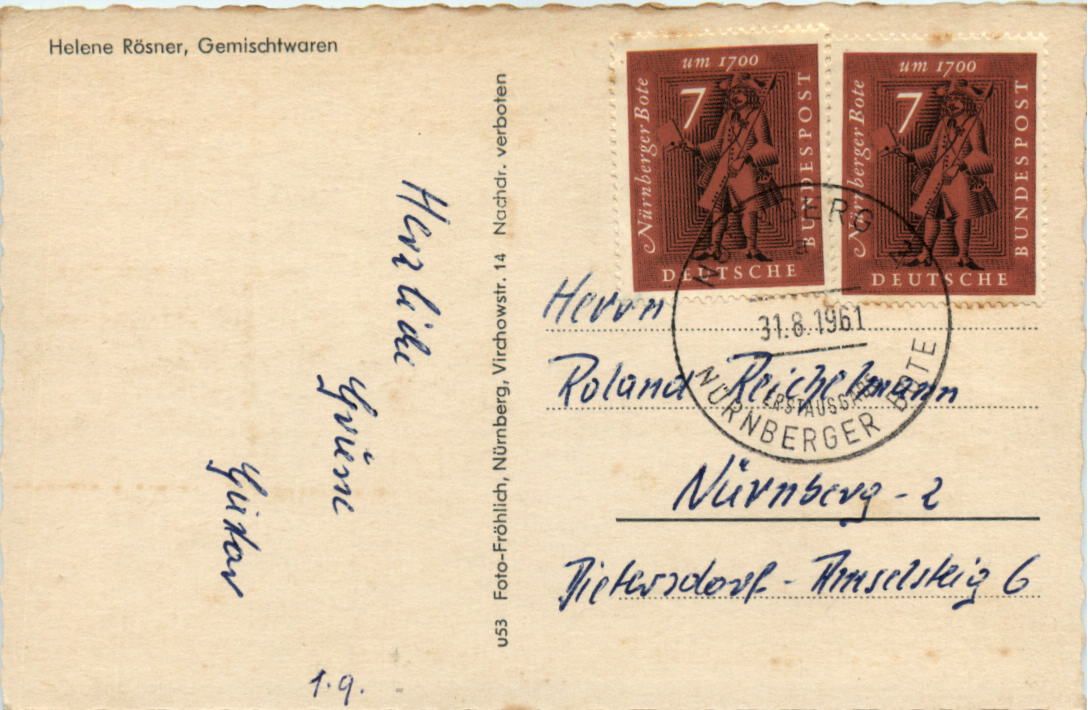 Helene Rösner, Gemischtwaren
Herzliche
Grüsse
Gustav
1.9.
u53 Foto-Fröhlich, Nürnberg, Virchowstr. 14 Nachdr. verboten
um 1700
7
Nürnberger Bote
DEUTSCHE
BUNDESPOST
um 1700
7
Nürnberger Bote
DEUTSCHE
BUNDESPOST
NÜRNBERG 2
a
31.8.1961
ERSTAUSGABE
NÜRNBERGER BOTE
Herrn
Roland Reichelmann
Nürnberg-2
Dietersdorf-Amselsteig 6